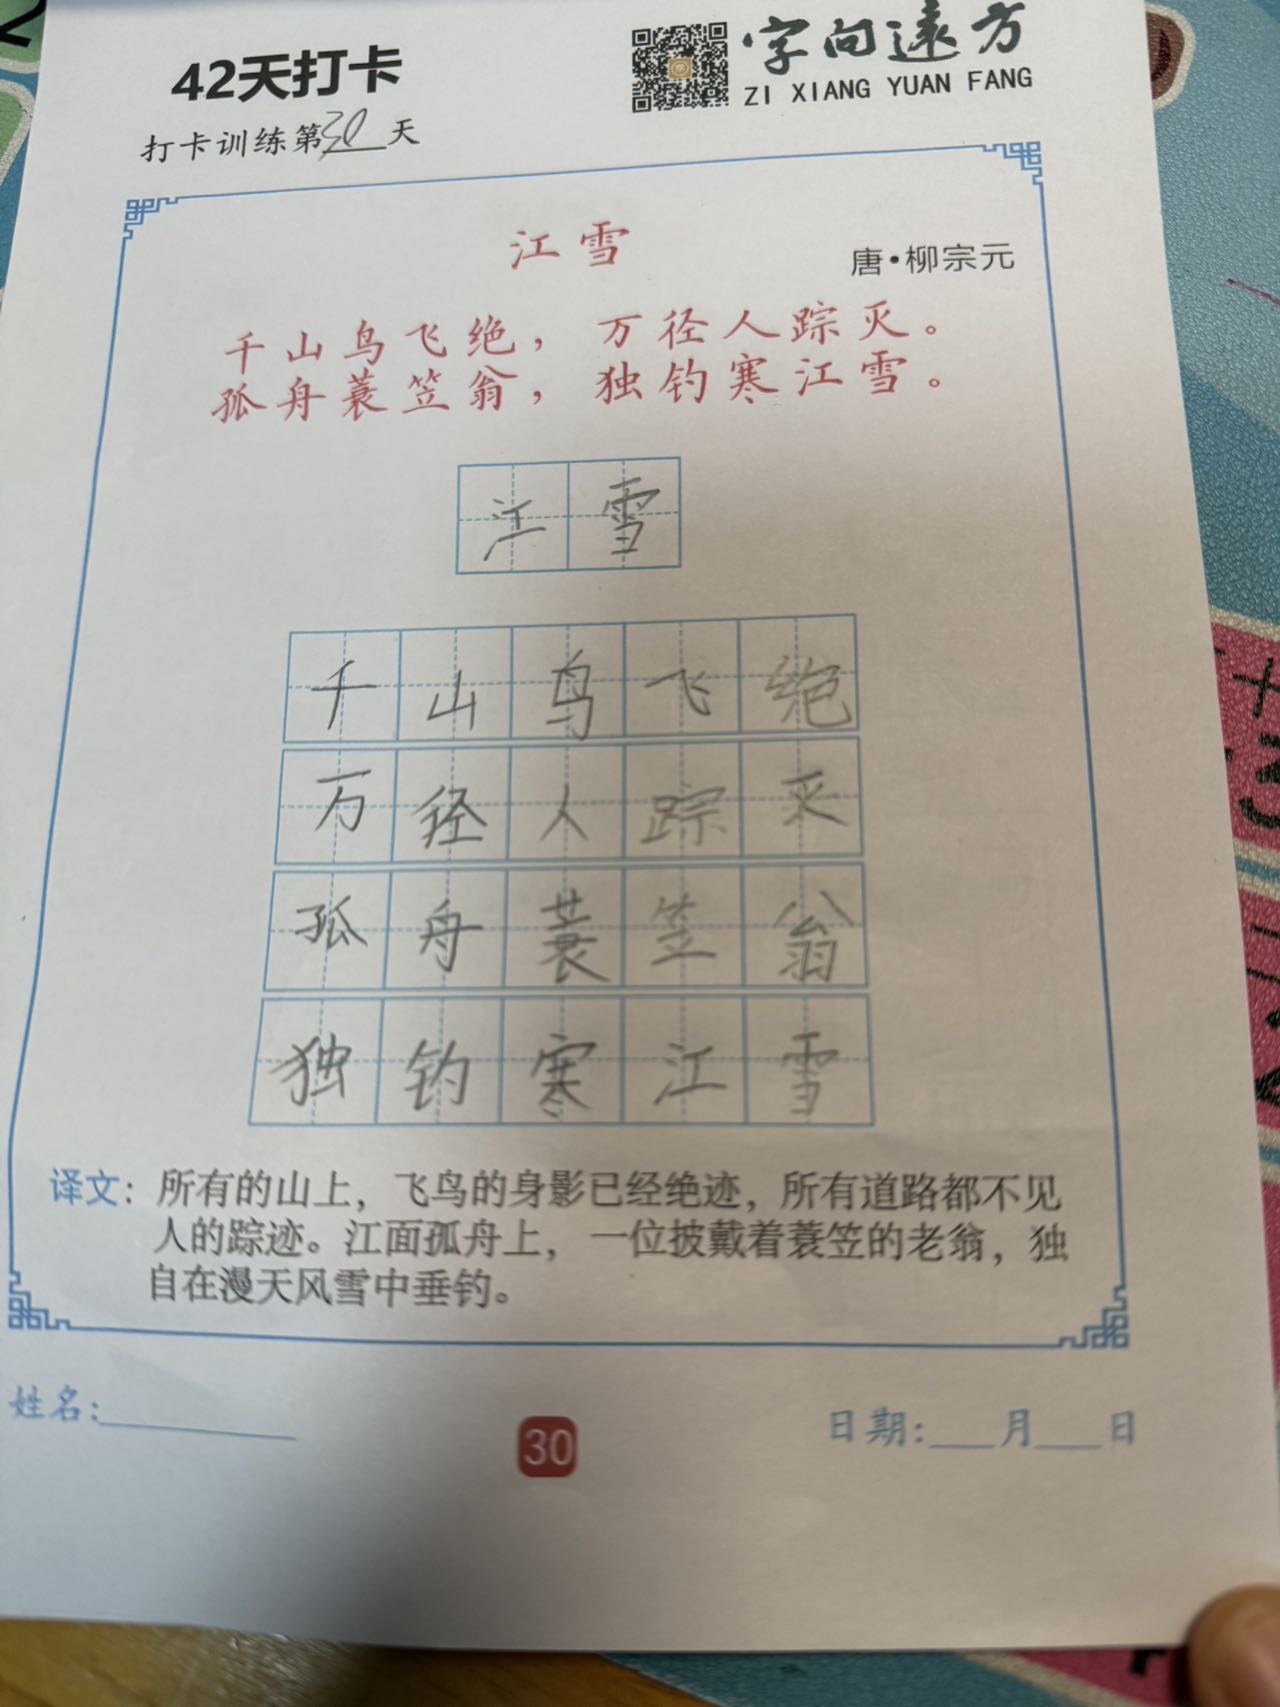 42天打卡
字向遠方
ZI XIANG YUAN FANG
打卡训练第30天
江雪
唐·柳宗元
千山鸟飞绝，万径人踪灭。
孤舟蓑笠翁，独钓寒江雪。
江雪
千山鸟飞绝
万径人踪灭
孤舟蓑笠翁
独钓寒江雪
译文：所有的山上，飞鸟的身影已经绝迹，所有道路都不见
人的踪迹。江面孤舟上，一位披戴着蓑笠的老翁，独
自在漫天风雪中垂钓。
姓名:
30
日期: 月 日